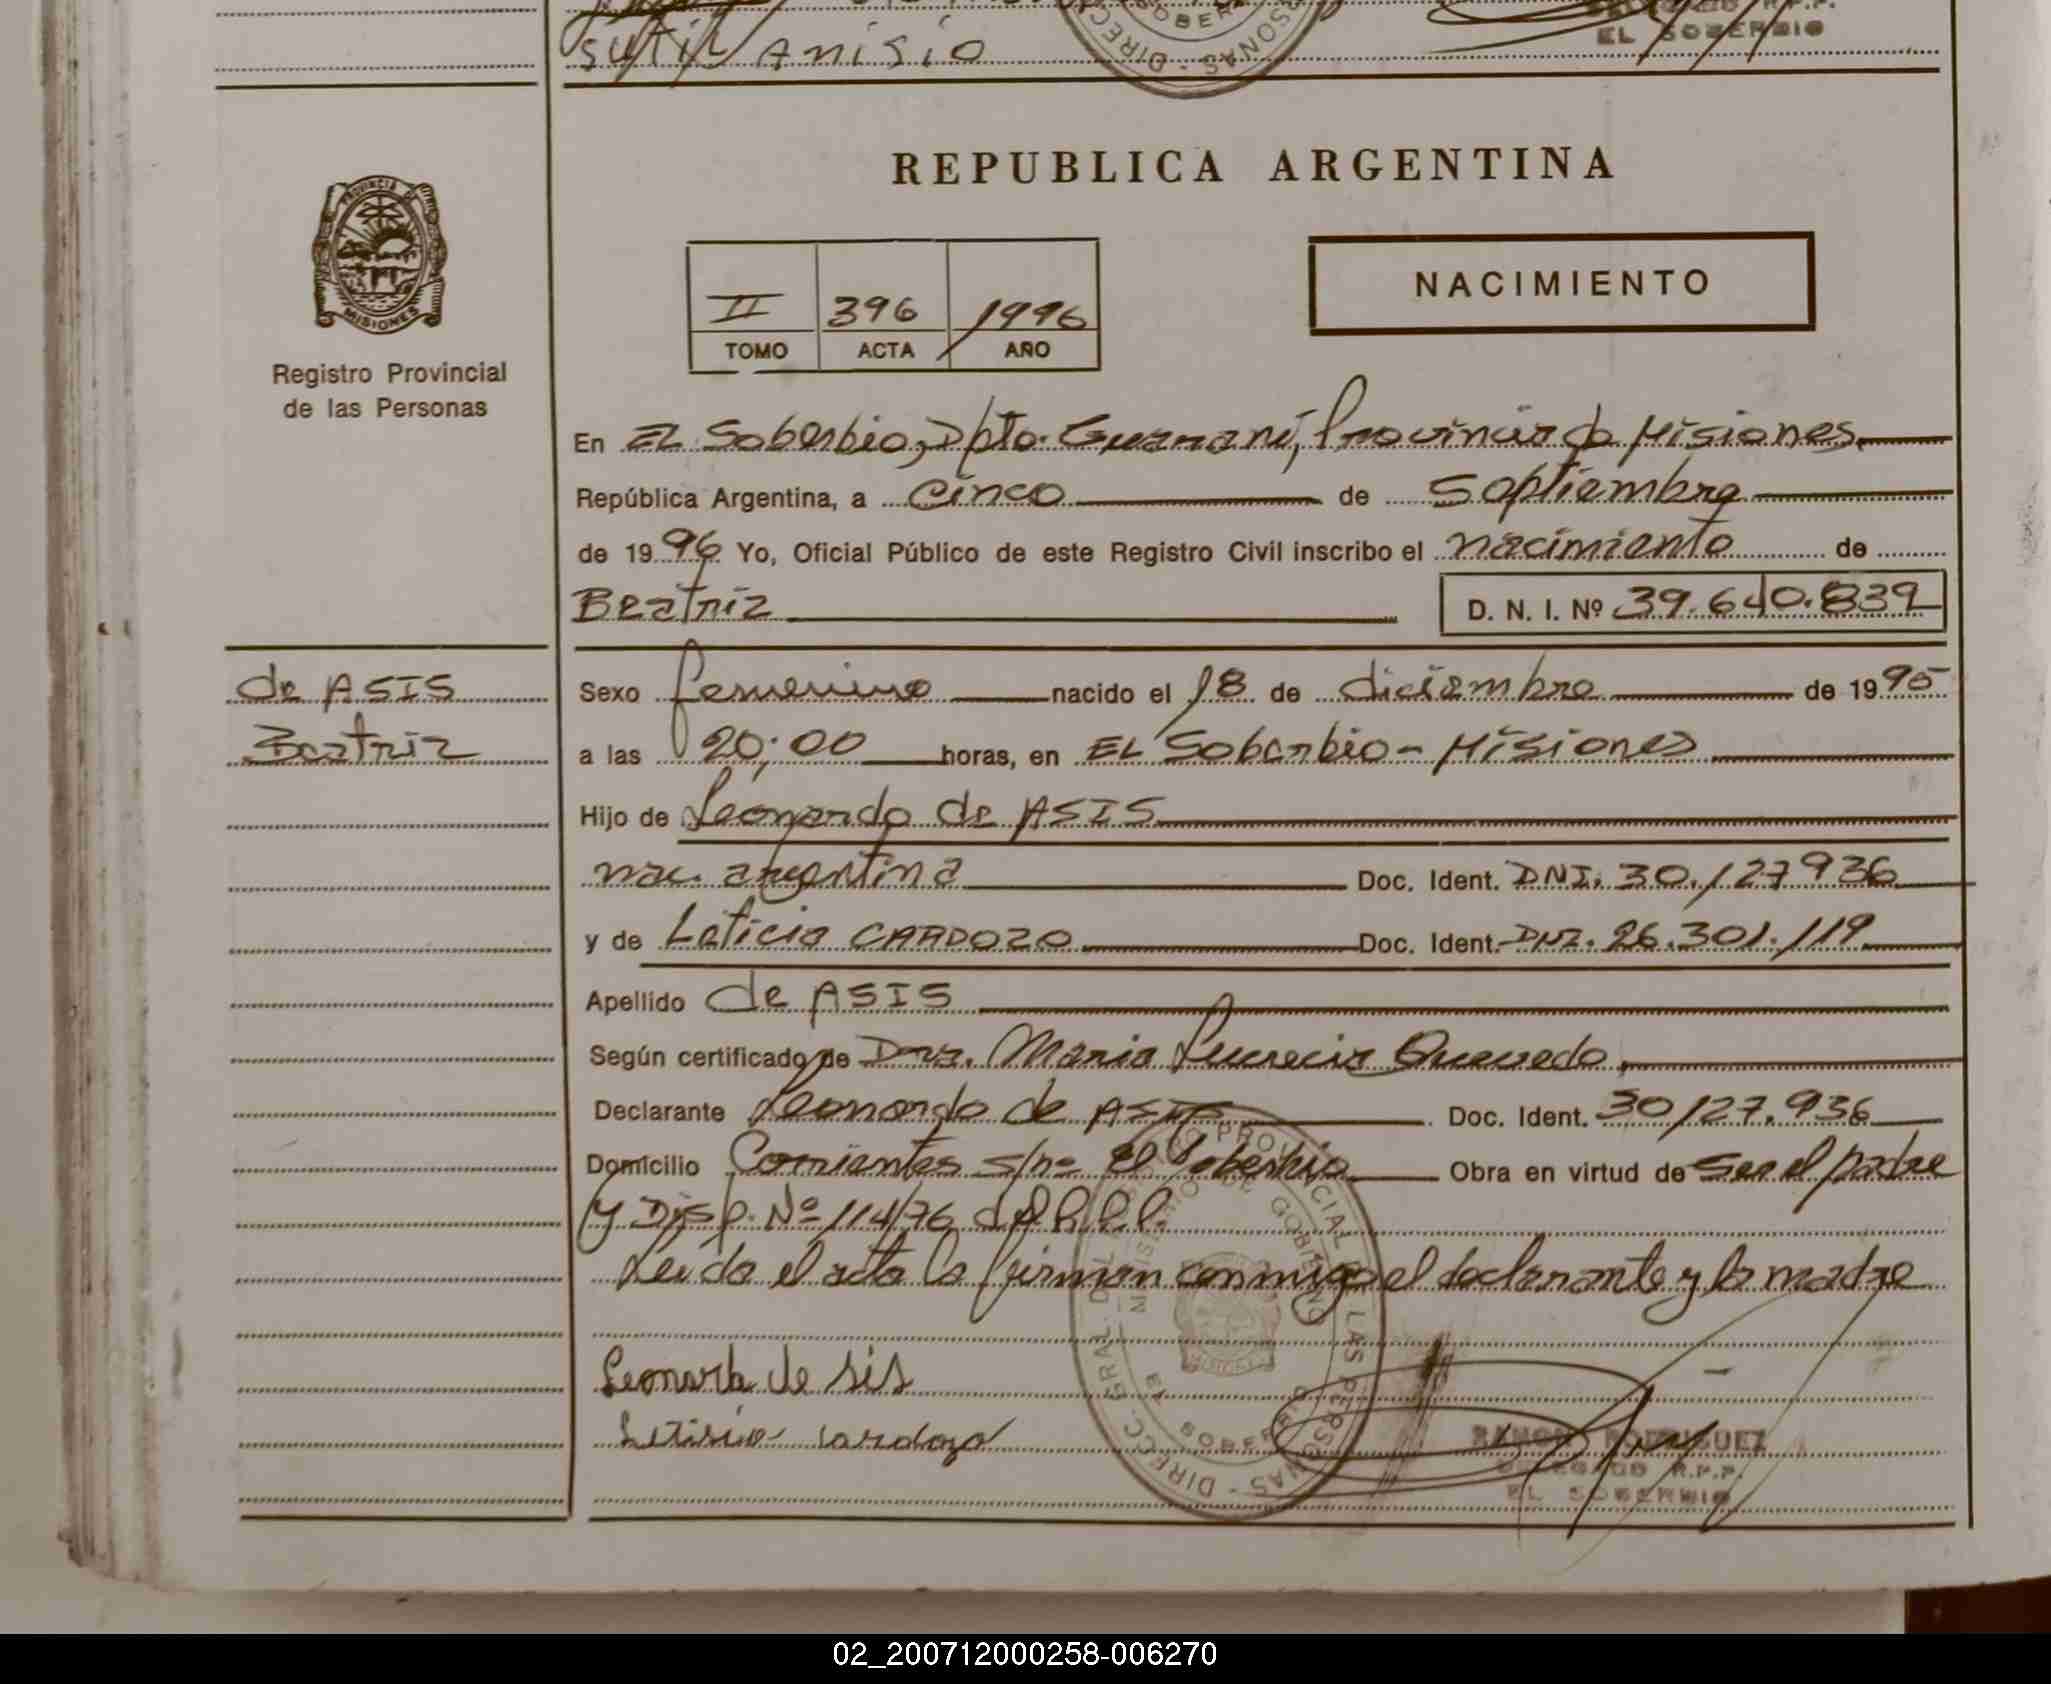 sutil Anisio
EL SOBERBIO
REPUBLICA ARGENTINA
PROVINCIA DE
MISIONES
Registro Provincial
de las Personas
II 396 1996
TOMO ACTA AÑO
NACIMIENTO
En EL Soberbio, Dpto. Guaraní, Provincia de Misiones.
República Argentina, a cinco de Septiembre
de 1996 Yo, Oficial Público de este Registro Civil inscribo el nacimiento de
Beatriz D. N. I. Nº 39.640.839
de ASIS
Beatriz
Sexo femenino nacido el 18 de diciembre de 1995
a las 20:00 horas, en EL Soberbio - Misiones
Hijo de Leonardo de ASIS
nac. argentina Doc. Ident. DNI. 30.127936
y de Leticia CARDOZO Doc. Ident. DNI. 26.301.119
Apellido de ASIS
Según certificado de Dra. Maria Lucrecia Quevedo
Declarante Leonardo de ASIS Doc. Ident. 30127.936
Domicilio Corrientes s/nº El Soberbio Obra en virtud de ser el padre
y Disp. Nº 114/76 d
Leido el acta la firman conmigo el declarante y la madre
Leonardo de sis
Letisia cardozo
RAMON RODRIGUEZ
DELEGADO R.P.P.
EL SOBERBIO
02_200712000258-006270